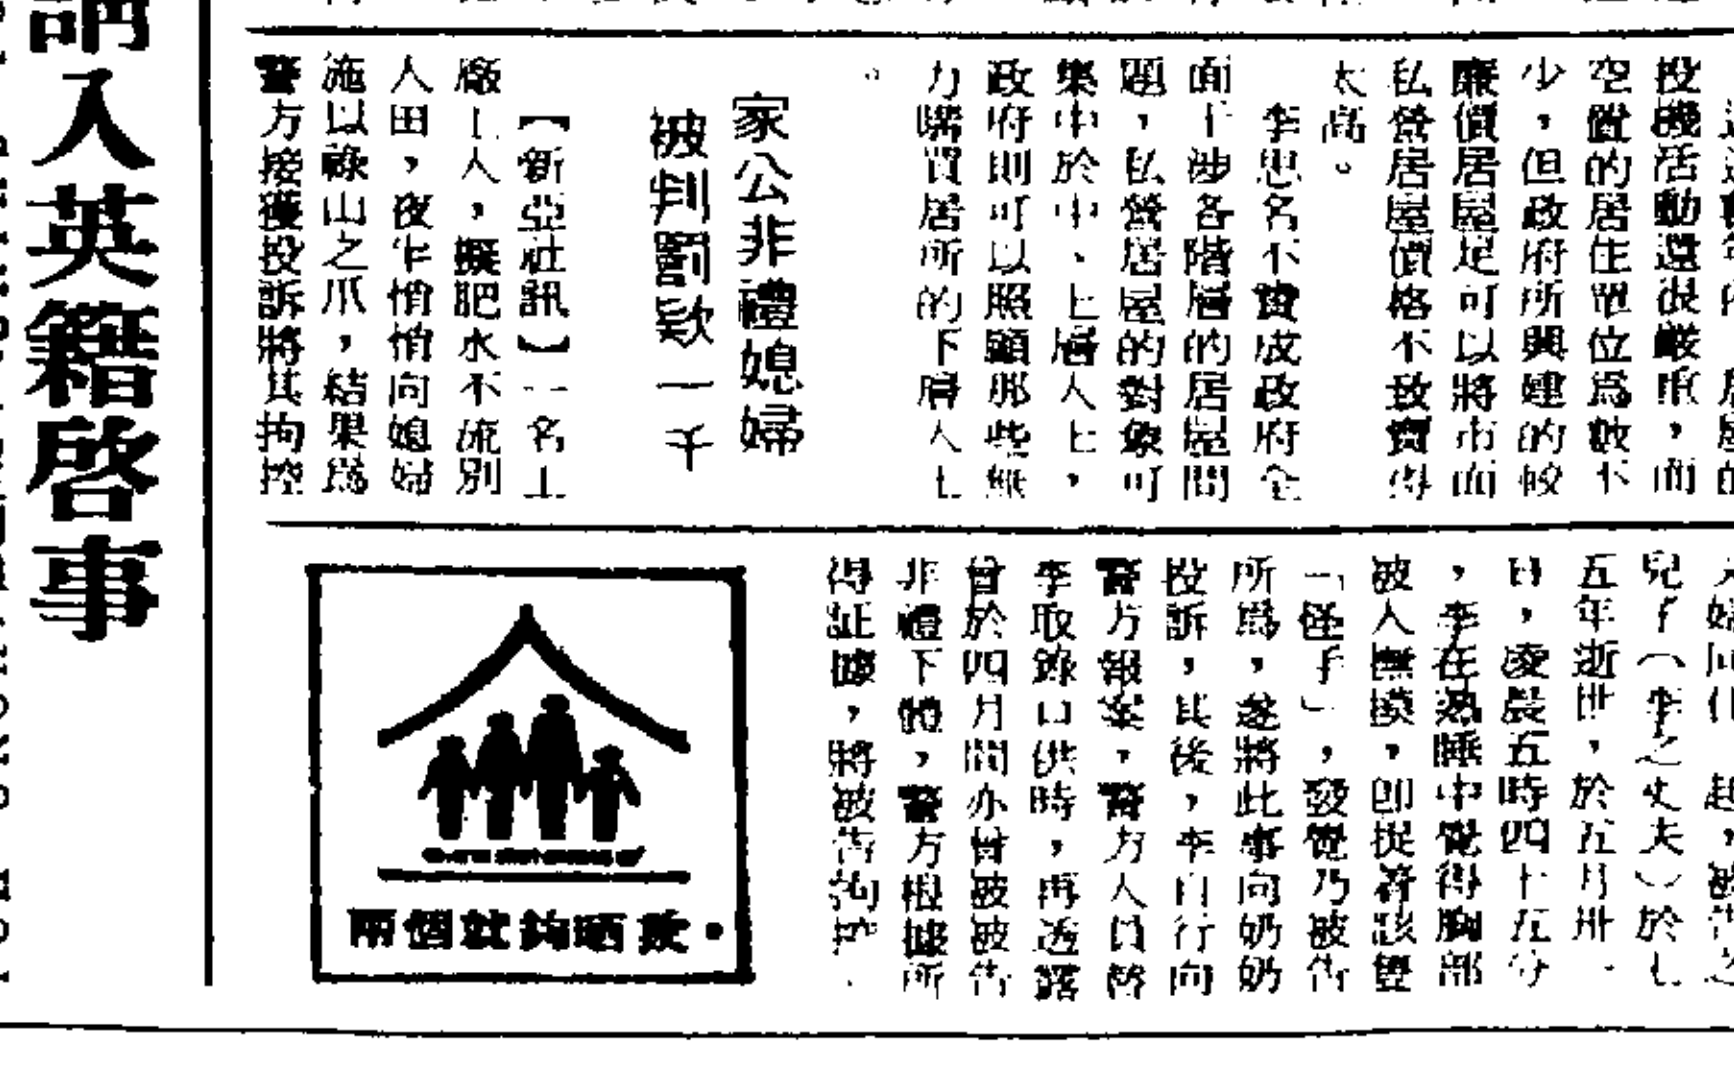 投機活動還很嚴重，而
空置的居住單位爲數不
少，但政府所興建的較
廉價居屋足可以將市面
私營居屋價格不致賣得
太高。
李思名不贊成政府全
面干涉各階層的居屋問
題，私營居屋的對象可
集中於中、上層人士，
政府則可以照顧那些無
力購買居所的下層人士
。
家公非禮媳婦
被判罰欵一千
【新亞社訊】一名工
廠工人，擬肥水不流別
人田，夜半悄悄向媳婦
施以祿山之爪，結果爲
警方接獲投訴將其拘控
兒子（李之丈夫）於七
五年逝世，於五月卅一
日，凌晨五時四十五分
，李在熟睡中覺得胸部
被人撫摸，即捉着該雙
「怪手」，發覺乃被告
所爲，遂將此事向奶奶
投訴，其後，李自行向
警方報案，警方人員替
李取錄口供時，再透露
曾於四月間亦曾被被告
非禮下體，警方根據所
得証據，將被告拘控。
兩個就夠晒數·
入英籍啓事